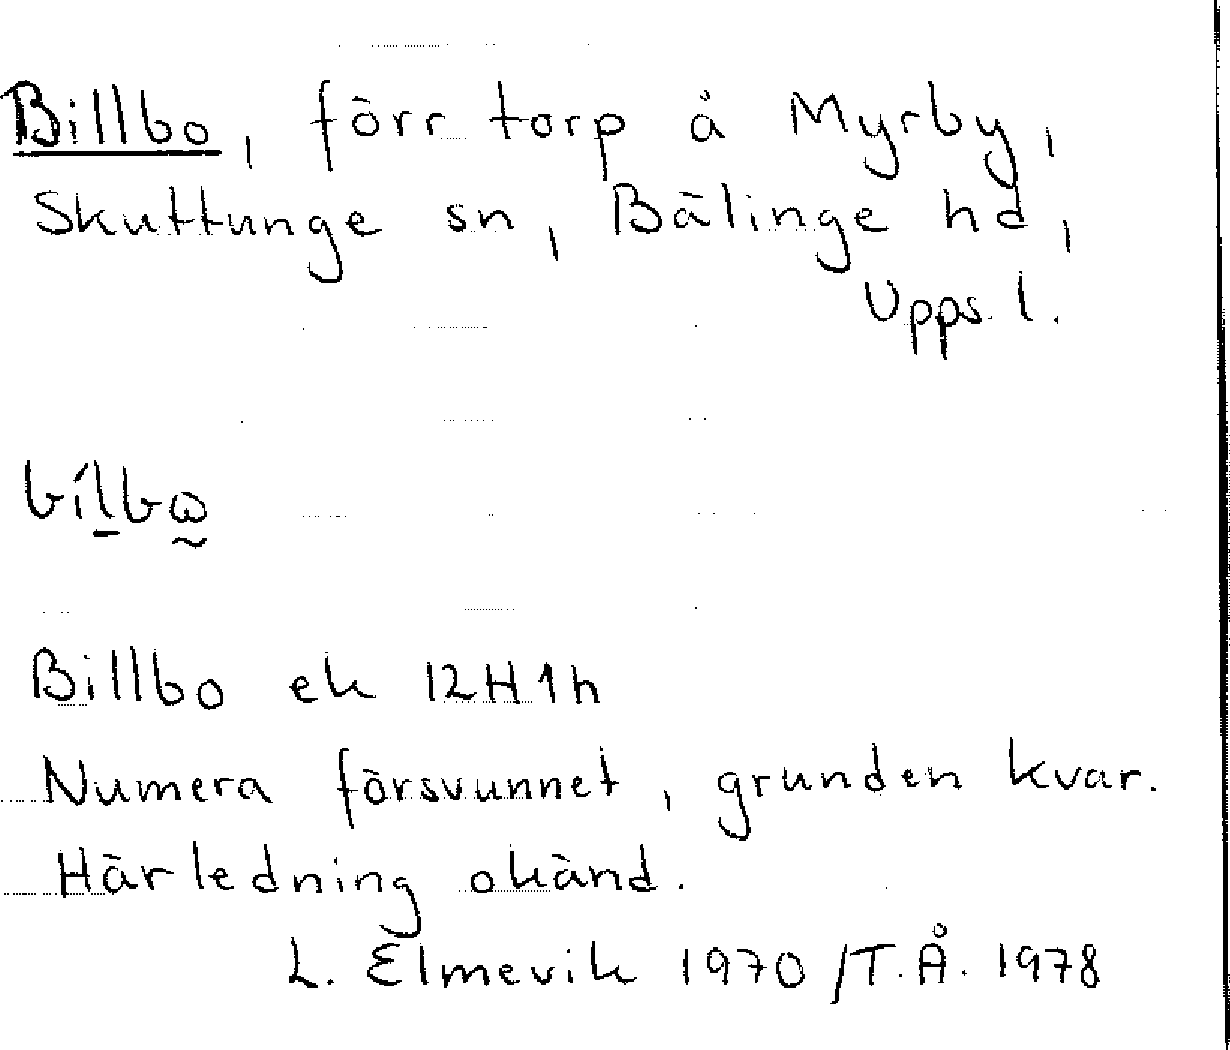 Billbo, förr torp å Myrby,
Skuttunge sn, Bälinge hd,
Upps. l.
bílbω
Billbo ek 12H1h
Numera försvunnet, grunden kvar.
Härledning okänd.
L. Elmevik 1970 /T.Å. 1978